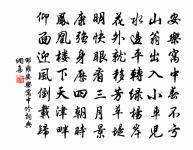 安樂窩中春不虧
山翁出入小車兒
水邊平轉綠楊岸
花外就移芳草堤
明快眼看三月景
康強身歷四朝時
鳳凰樓下天津畔
仰面迎風倒載歸
邵雍安樂窩中吟詞典
網書